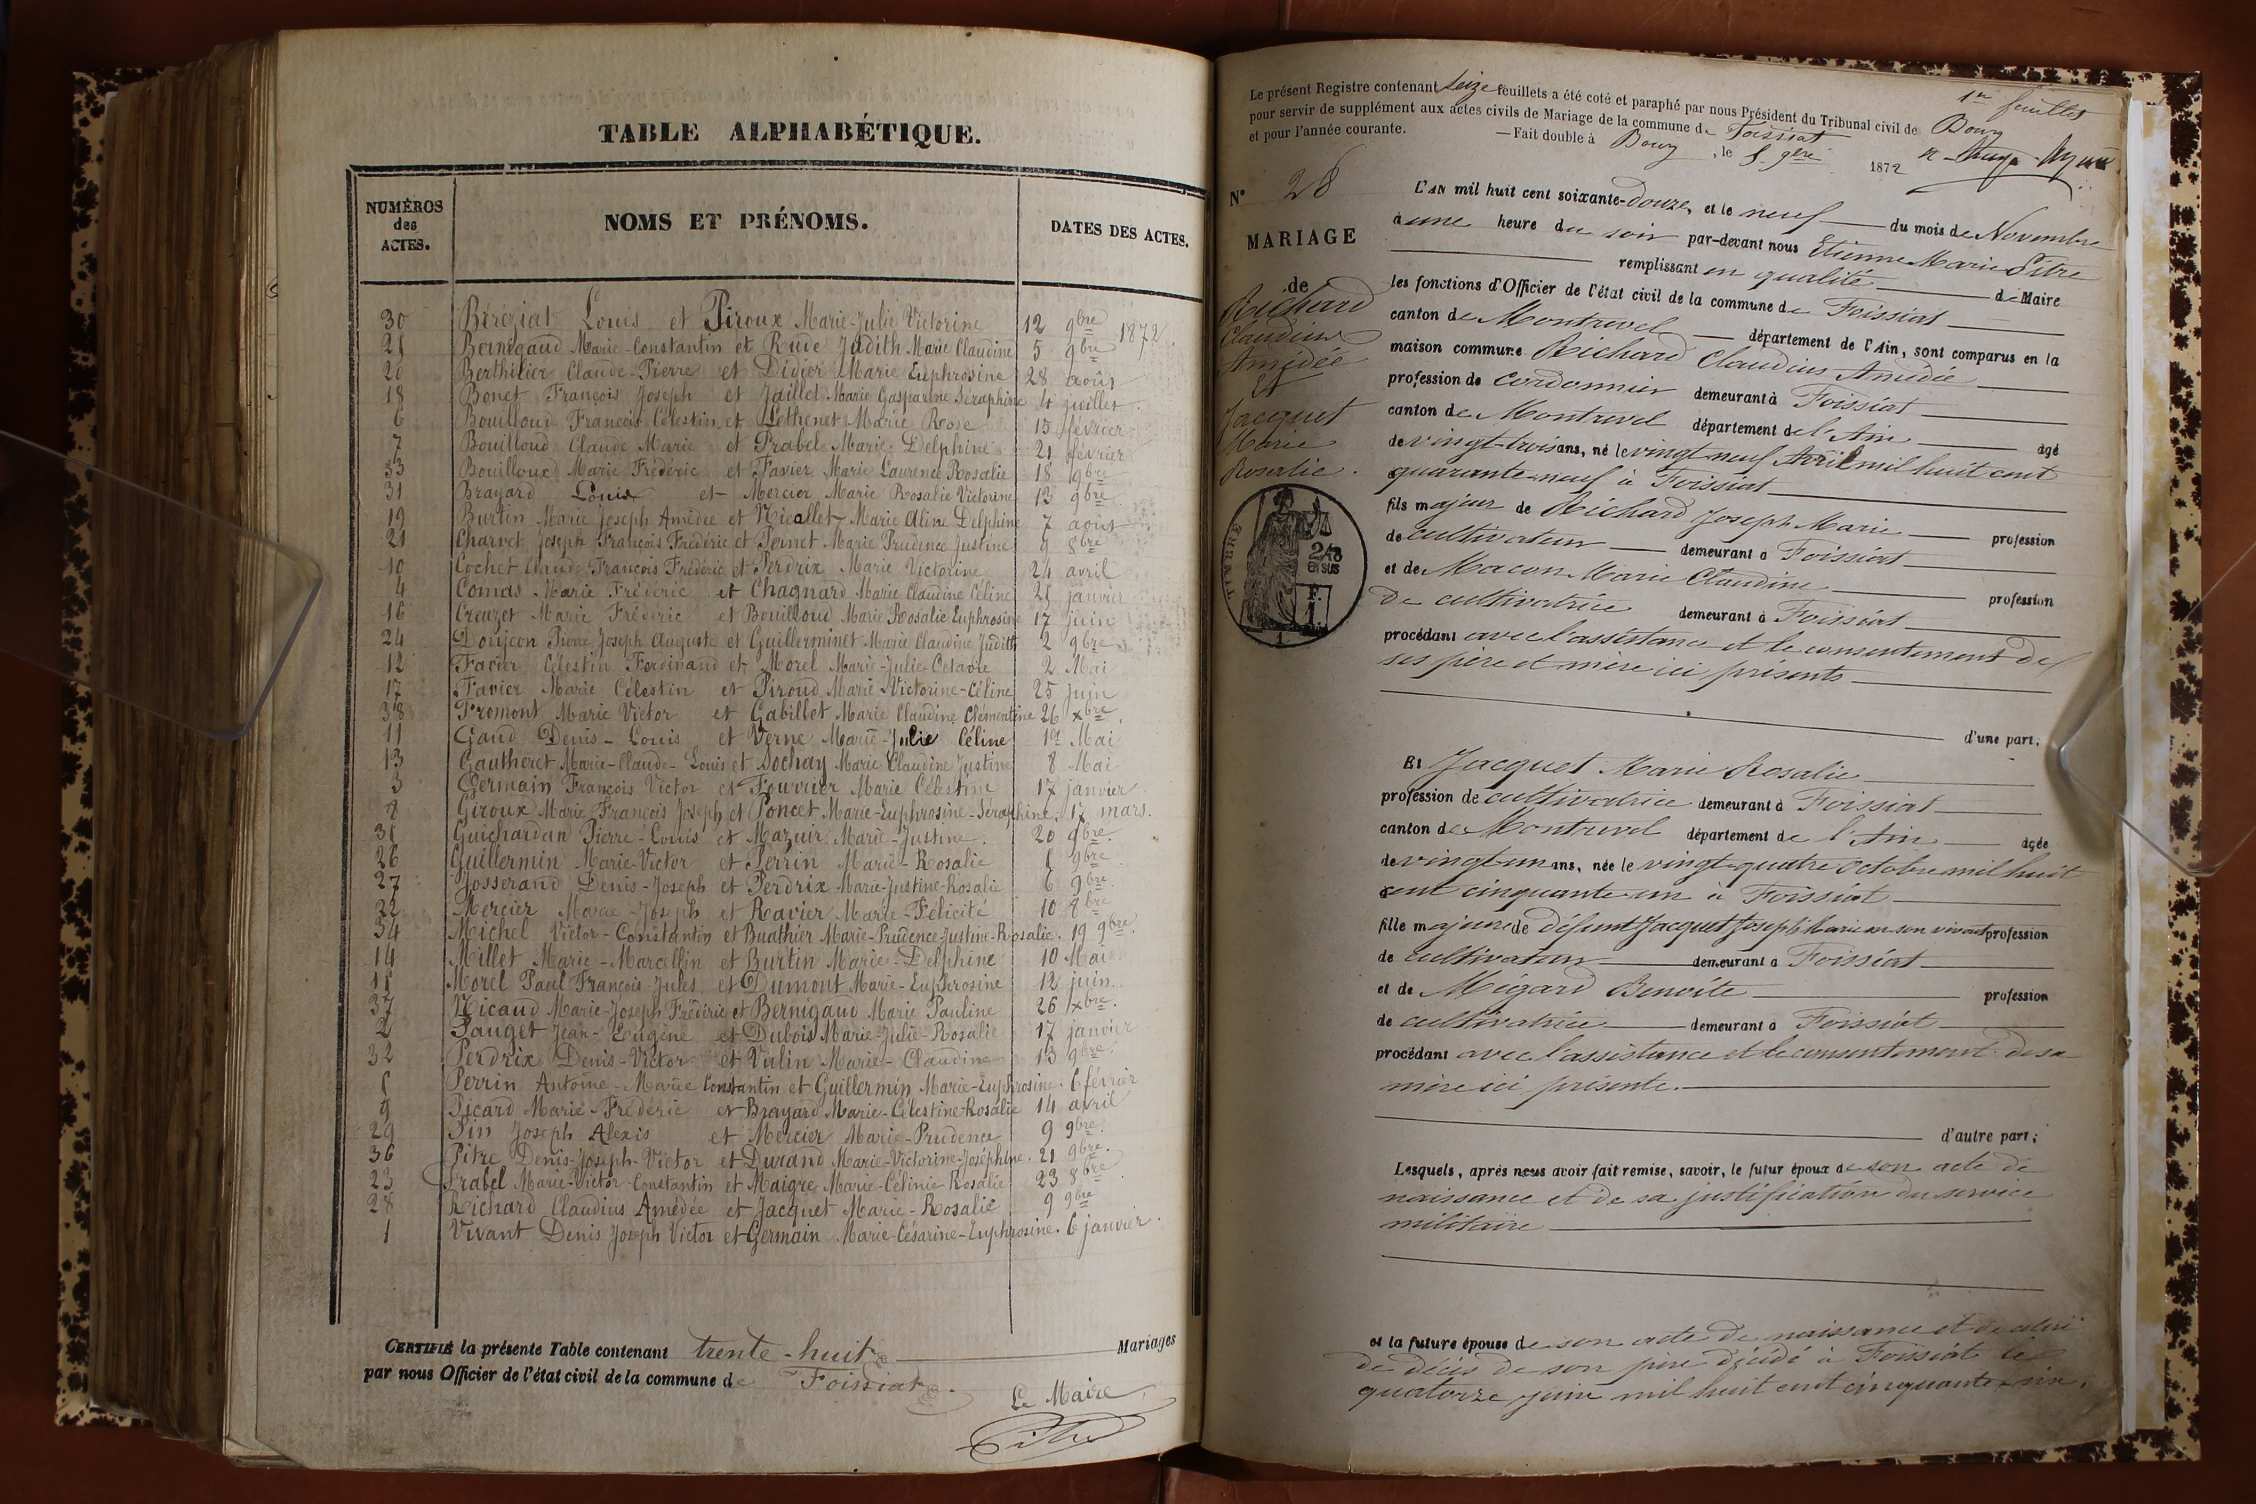 TABLE ALPHABÉTIQUE.
NUMÉROS des ACTES. NOMS ET PRÉNOMS. DATES DES ACTES.
30 Béréziat Louis et Piroux Marie-Julie Victorine 12 9bre 1872
25 Bernigaud Marie-Constantin et Rude Judith Marie Claudine 5 9bre
20 Berthilier Claude-Pierre et Didier Marie Euphrosine 28 août
18 Bonet François Joseph et Jaillet Marie Gasparine Séraphine 4 juillet
6 Bouilloud François Célestin et Lethenet Marie Rose 15 février
7 Bouilloud Claude Marie et Prabel Marie Delphine 21 février
33 Bouilloux Marie Frédéric et Favier Marie Laurence Rosalie 18 9bre
31 Brayard Louis et Mercier Marie Rosalie Victorine 13 9bre
19 Burtin Marie Joseph Amédée et Nicollet Marie Aline Delphine 7 août
21 Charvet Joseph François Frédéric et Pernet Marie Prudence Justine 9 8bre
10 Cochet Claude François Frédéric et Perdrix Marie Victorine 24 avril
4 Comas Marie Frédéric et Chagnard Marie Claudine Céline 25 janvier
16 Creuzet Marie Frédéric et Bouilloud Marie Rosalie Euphrosine 17 juin
24 Donjeon Pierre Joseph Auguste et Guillerminet Marie Claudine Judith 2 9bre
12 Favier Célestin Ferdinand et Morel Marie-Julie Octavie 2 Mai
17 Favier Marie Célestin et Piroud Marie Victorine-Céline 25 juin
38 Fromont Marie Victor et Gabillet Marie Claudine Clémentine 26 xbre
11 Gaud Denis-Louis et Verne Marie-Julie Céline 1er Mai
13 Gautheret Marie-Claude-Louis et Dochay Marie Claudine Justine 8 Mai
3 Germain François Victor et Fouvrier Marie Célestine 17 janvier
8 Giroux Marie François Joseph et Poncet Marie-Euphrosine-Séraphine. 17 mars.
35 Guichardan Pierre-Louis et Mazuir Marie-Justine. 20 9bre.
26 Guillermin Marie-Victor et Perrin Marie-Rosalie 6 9bre
27 Josserand Denis-Joseph et Perdrix Marie-Justine-Rosalie 6 9bre.
22 Mercier Marie-Joseph et Ravier Marie-Félicité 10 8bre
34 Michel Victor-Constantin et Buathier Marie-Prudence-Justine-Rosalie. 19 9bre.
14 Millet Marie-Marcellin et Burtin Marie-Delphine 10 Mai
15 Morel Paul François Jules et Dumont Marie-Euphrosine 12 juin.
37 Nicaud Marie-Joseph Frédéric et Bernigaud Marie Pauline 26 xbre.
2 Pauget Jean-Eugène et Dubois Marie-Julie-Rosalie 17 janvier
32 Perdrix Denis-Victor et Vulin Marie-Claudine 13 9bre.
5 Perrin Antoine-Marie Constantin et Guillermin Marie-Euphrosine. 6 février
9 Picard Marie-Frédéric et Brayard Marie-Célestine-Rosalie 14 avril
29 Pin Joseph Alexis et Mercier Marie-Prudence 9 9bre.
36 Pitre Denis-Joseph-Victor et Durand Marie-Victorine-Joséphine. 21 9bre.
23 Prabel Marie-Victor Constantin et Maigre Marie-Célinie Rosalie 23 8bre
28 Richard Claudius Amédée et Jacquet Marie-Rosalie 9 9bre
1 Vivant Denis Joseph Victor et Germain Marie-Césarine-Euphrosine. 6 janvier.
CERTIFIÉ la présente Table contenant trente-huit Mariages
par nous Officier de l'état civil de la commune de Foissiat.
Le Maire
Pitre
1er feuillet
Le présent Registre contenant Seize feuillets a été coté et paraphé par nous Président du Tribunal civil de Bourg
pour servir de supplément aux actes civils de Mariage de la commune de Foissiat
et pour l'année courante. —Fait double à Bourg, le 5 9bre 1872
N° 28
MARIAGE
de
Richard
Claudius
Amédée
et
Jacquet
Marie
Rosalie.
TIMBRE
2/10 EN SUS
1 F.
L'AN mil huit cent soixante-douze, et le neuf du mois de Novembre
à une heure du soir par-devant nous Etienne Marie Pitre
remplissant en qualité de Maire
les fonctions d'Officier de l'état civil de la commune de Foissiat
canton de Montrevel département de l'Ain, sont comparus en la
maison commune Richard Claudius Amédée
profession de cordonnier demeurant à Foissiat
canton de Montrevel département de l'Ain agé
de vingt-trois ans, né le vingt neuf Avril mil huit cent
quarante-neuf à Foissiat
fils majeur de Richard Joseph Marie profession
de cultivateur demeurant à Foissiat
et de Macon Marie Claudine profession
de cultivatrice demeurant à Foissiat
procédant avec l'assistance et le consentement de
ses père et mère ici présents
d'une part;
Et Jacquet Marie Rosalie
profession de cultivatrice demeurant à Foissiat
canton de Montrevel département de l'Ain agée
de vingt-un ans, née le vingt-quatre Octobre mil huit
cent cinquante-un à Foissiat
fille majeure de défunt Jacquet Joseph Marie en son vivant profession
de cultivateur demeurant à Foissiat
et de Mégard Benoite profession
de cultivatrice demeurant à Foissiat
procédant avec l'assistance et le consentement de sa
mère ici présente.
d'autre part;
Lesquels, après nous avoir fait remise, savoir, le futur époux de son acte de
naissance et de sa justification du service
militaire
et la future épouse de son acte de naissance et de celui
de décès de son père décédé à Foissiat le
quatorze juin mil huit cent cinquante-six.